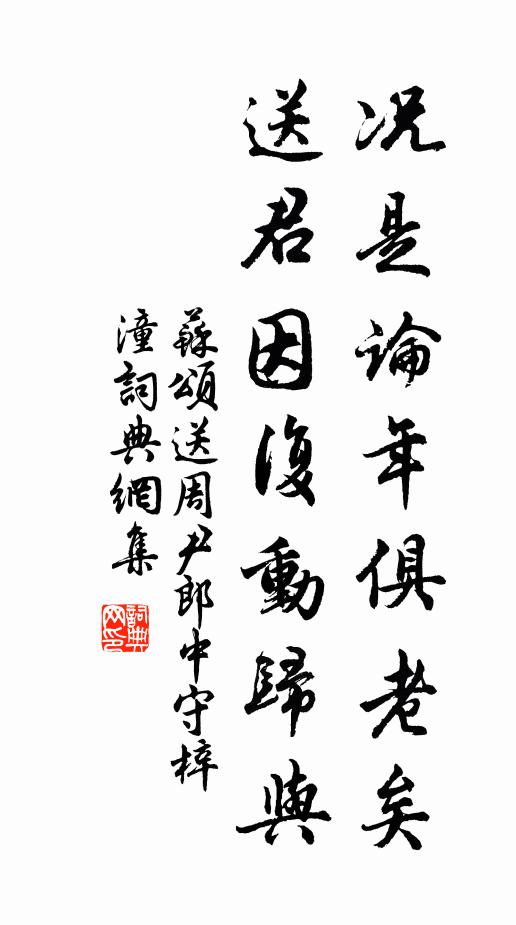 况是論年俱老矣
送君因復動歸輿
蘇頌送周尹郎中守梓
潼詞典網集
詞典
网印